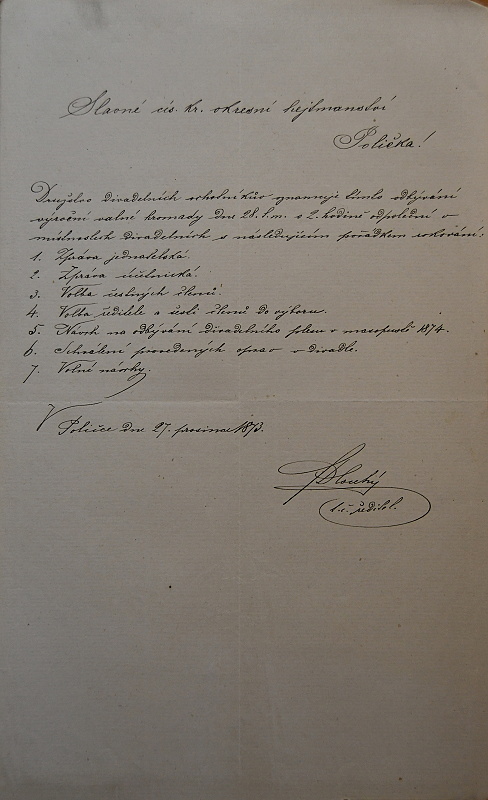 Slavné cís. kr. okresní hejtmanství
Polička!
Družstvo divadelních ochotníků oznamuje tímto odbývání
výroční valní hromady dne 28. t. m. o 2. hodině odpolední v
místnostech divadelních s následujícím pořádkem rokování:
1. Zpráva jednatelská.
2. Zpráva účetnická.
3. Volba čestných členů.
4. Volba ředitele a šesti členů do výboru.
5. Návrh na odbývání divadelního plesu v masopustě 1874.
6. Schválení provedených oprav v divadle.
7. Volné návrhy.
V Poličce dne 27. prosince 1873.
Dlouhý
t. č. ředitel.